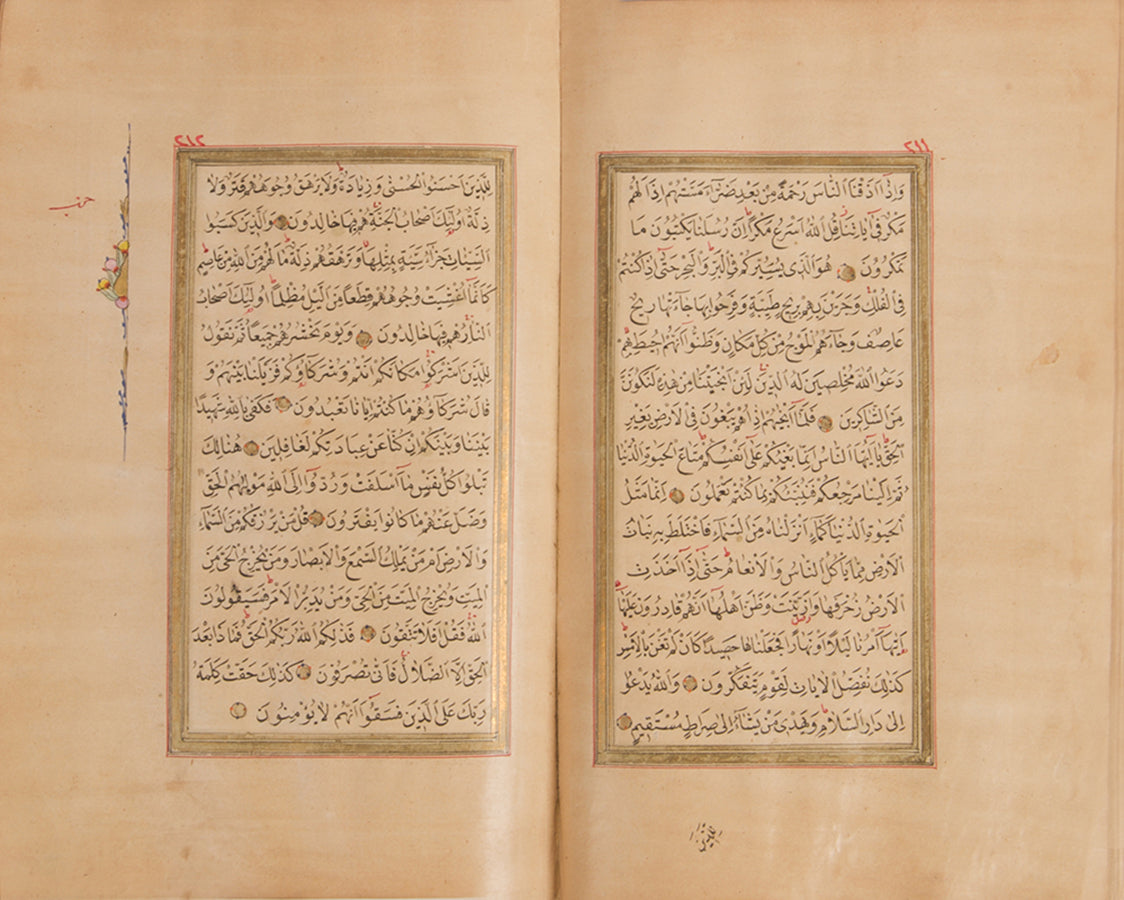 ٢١١
وَاِذَا اَذَقْنَا النَّاسَ رَحْمَةً مِنْ بَعْدِ ضَرَّاءَ مَسَّتْهُمْ اِذَا لَهُمْ
مَكْرٌ فِى اٰيَاتِنَا قُلِ اللّٰهُ اَسْرَعُ مَكْرًا اِنَّ رُسُلَنَا يَكْتُبُونَ مَا
تَمْكُرُونَ هُوَ الَّذِى يُسَيِّرُكُمْ فِى الْبَرِّ وَالْبَحْرِ حَتّٰى اِذَا كُنْتُمْ
فِى الْفُلْكِ وَجَرَيْنَ بِهِمْ بِرِيحٍ طَيِّبَةٍ وَفَرِحُوا بِهَا جَاءَتْهَا رِيحٌ
عَاصِفٌ وَجَاءَهُمُ الْمَوْجُ مِنْ كُلِّ مَكَانٍ وَظَنُّوا اَنَّهُمْ اُحِيطَ بِهِمْ
دَعَوُا اللّٰهَ مُخْلِصِينَ لَهُ الدِّينَ لَئِنْ اَنْجَيْتَنَا مِنْ هٰذِهِ لَنَكُونَنَّ
مِنَ الشَّاكِرِينَ فَلَمَّا اَنْجٰيهُمْ اِذَا هُمْ يَبْغُونَ فِى الْاَرْضِ بِغَيْرِ
الْحَقِّ يَا اَيُّهَا النَّاسُ اِنَّمَا بَغْيُكُمْ عَلٰى اَنْفُسِكُمْ مَتَاعَ الْحَيٰوةِ الدُّنْيَا
ثُمَّ اِلَيْنَا مَرْجِعُكُمْ فَنُنَبِّئُكُمْ بِمَا كُنْتُمْ تَعْمَلُونَ اِنَّمَا مَثَلُ
الْحَيٰوةِ الدُّنْيَا كَمَاءٍ اَنْزَلْنَاهُ مِنَ السَّمَاءِ فَاخْتَلَطَ بِهِ نَبَاتُ
الْاَرْضِ مِمَّا يَاْكُلُ النَّاسُ وَالْاَنْعَامُ حَتّٰى اِذَا اَخَذَتِ
الْاَرْضُ زُخْرُفَهَا وَازَّيَّنَتْ وَظَنَّ اَهْلُهَا اَنَّهُمْ قَادِرُونَ عَلَيْهَا
اَتٰيهَا اَمْرُنَا لَيْلًا اَوْ نَهَارًا فَجَعَلْنَاهَا حَصِيدًا كَاَنْ لَمْ تَغْنَ بِالْاَمْسِ
كَذٰلِكَ نُفَصِّلُ الْاٰيَاتِ لِقَوْمٍ يَتَفَكَّرُونَ وَاللّٰهُ يَدْعُوا
اِلٰى دَارِ السَّلَامِ وَيَهْدِى مَنْ يَشَاءُ اِلٰى صِرَاطٍ مُسْتَقِيمٍ
لِلَّذِينَ
٢١٢
لِلَّذِينَ اَحْسَنُوا الْحُسْنٰى وَزِيَادَةٌ وَلَا يَرْهَقُ وُجُوهَهُمْ قَتَرٌ وَلَا
ذِلَّةٌ اُولٰئِكَ اَصْحَابُ الْجَنَّةِ هُمْ فِيهَا خَالِدُونَ وَالَّذِينَ كَسَبُوا
السَّيِّئَاتِ جَزَاءُ سَيِّئَةٍ بِمِثْلِهَا وَتَرْهَقُهُمْ ذِلَّةٌ مَا لَهُمْ مِنَ اللّٰهِ مِنْ عَاصِمٍ
كَاَنَّمَا اُغْشِيَتْ وُجُوهُهُمْ قِطَعًا مِنَ الَّيْلِ مُظْلِمًا اُولٰئِكَ اَصْحَابُ
النَّارِ هُمْ فِيهَا خَالِدُونَ وَيَوْمَ نَحْشُرُهُمْ جَمِيعًا ثُمَّ نَقُولُ
لِلَّذِينَ اَشْرَكُوا مَكَانَكُمْ اَنْتُمْ وَشُرَكَاؤُكُمْ فَزَيَّلْنَا بَيْنَهُمْ وَ
قَالَ شُرَكَاؤُهُمْ مَا كُنْتُمْ اِيَّانَا تَعْبُدُونَ فَكَفٰى بِاللّٰهِ شَهِيدًا
بَيْنَنَا وَبَيْنَكُمْ اِنْ كُنَّا عَنْ عِبَادَتِكُمْ لَغَافِلِينَ هُنَالِكَ
تَبْلُوا كُلُّ نَفْسٍ مَا اَسْلَفَتْ وَرُدُّوا اِلَى اللّٰهِ مَوْلٰيهُمُ الْحَقِّ
وَضَلَّ عَنْهُمْ مَا كَانُوا يَفْتَرُونَ قُلْ مَنْ يَرْزُقُكُمْ مِنَ السَّمَاءِ
وَالْاَرْضِ اَمْ مَنْ يَمْلِكُ السَّمْعَ وَالْاَبْصَارَ وَمَنْ يُخْرِجُ الْحَىَّ مِنَ
الْمَيِّتِ وَيُخْرِجُ الْمَيِّتَ مِنَ الْحَىِّ وَمَنْ يُدَبِّرُ الْاَمْرَ فَسَيَقُولُونَ
اللّٰهُ فَقُلْ اَفَلَا تَتَّقُونَ فَذٰلِكُمُ اللّٰهُ رَبُّكُمُ الْحَقُّ فَمَاذَا بَعْدَ
الْحَقِّ اِلَّا الضَّلَالُ فَاَنّٰى تُصْرَفُونَ كَذٰلِكَ حَقَّتْ كَلِمَةُ
رَبِّكَ عَلَى الَّذِينَ فَسَقُوا اَنَّهُمْ لَا يُؤْمِنُونَ
حزب